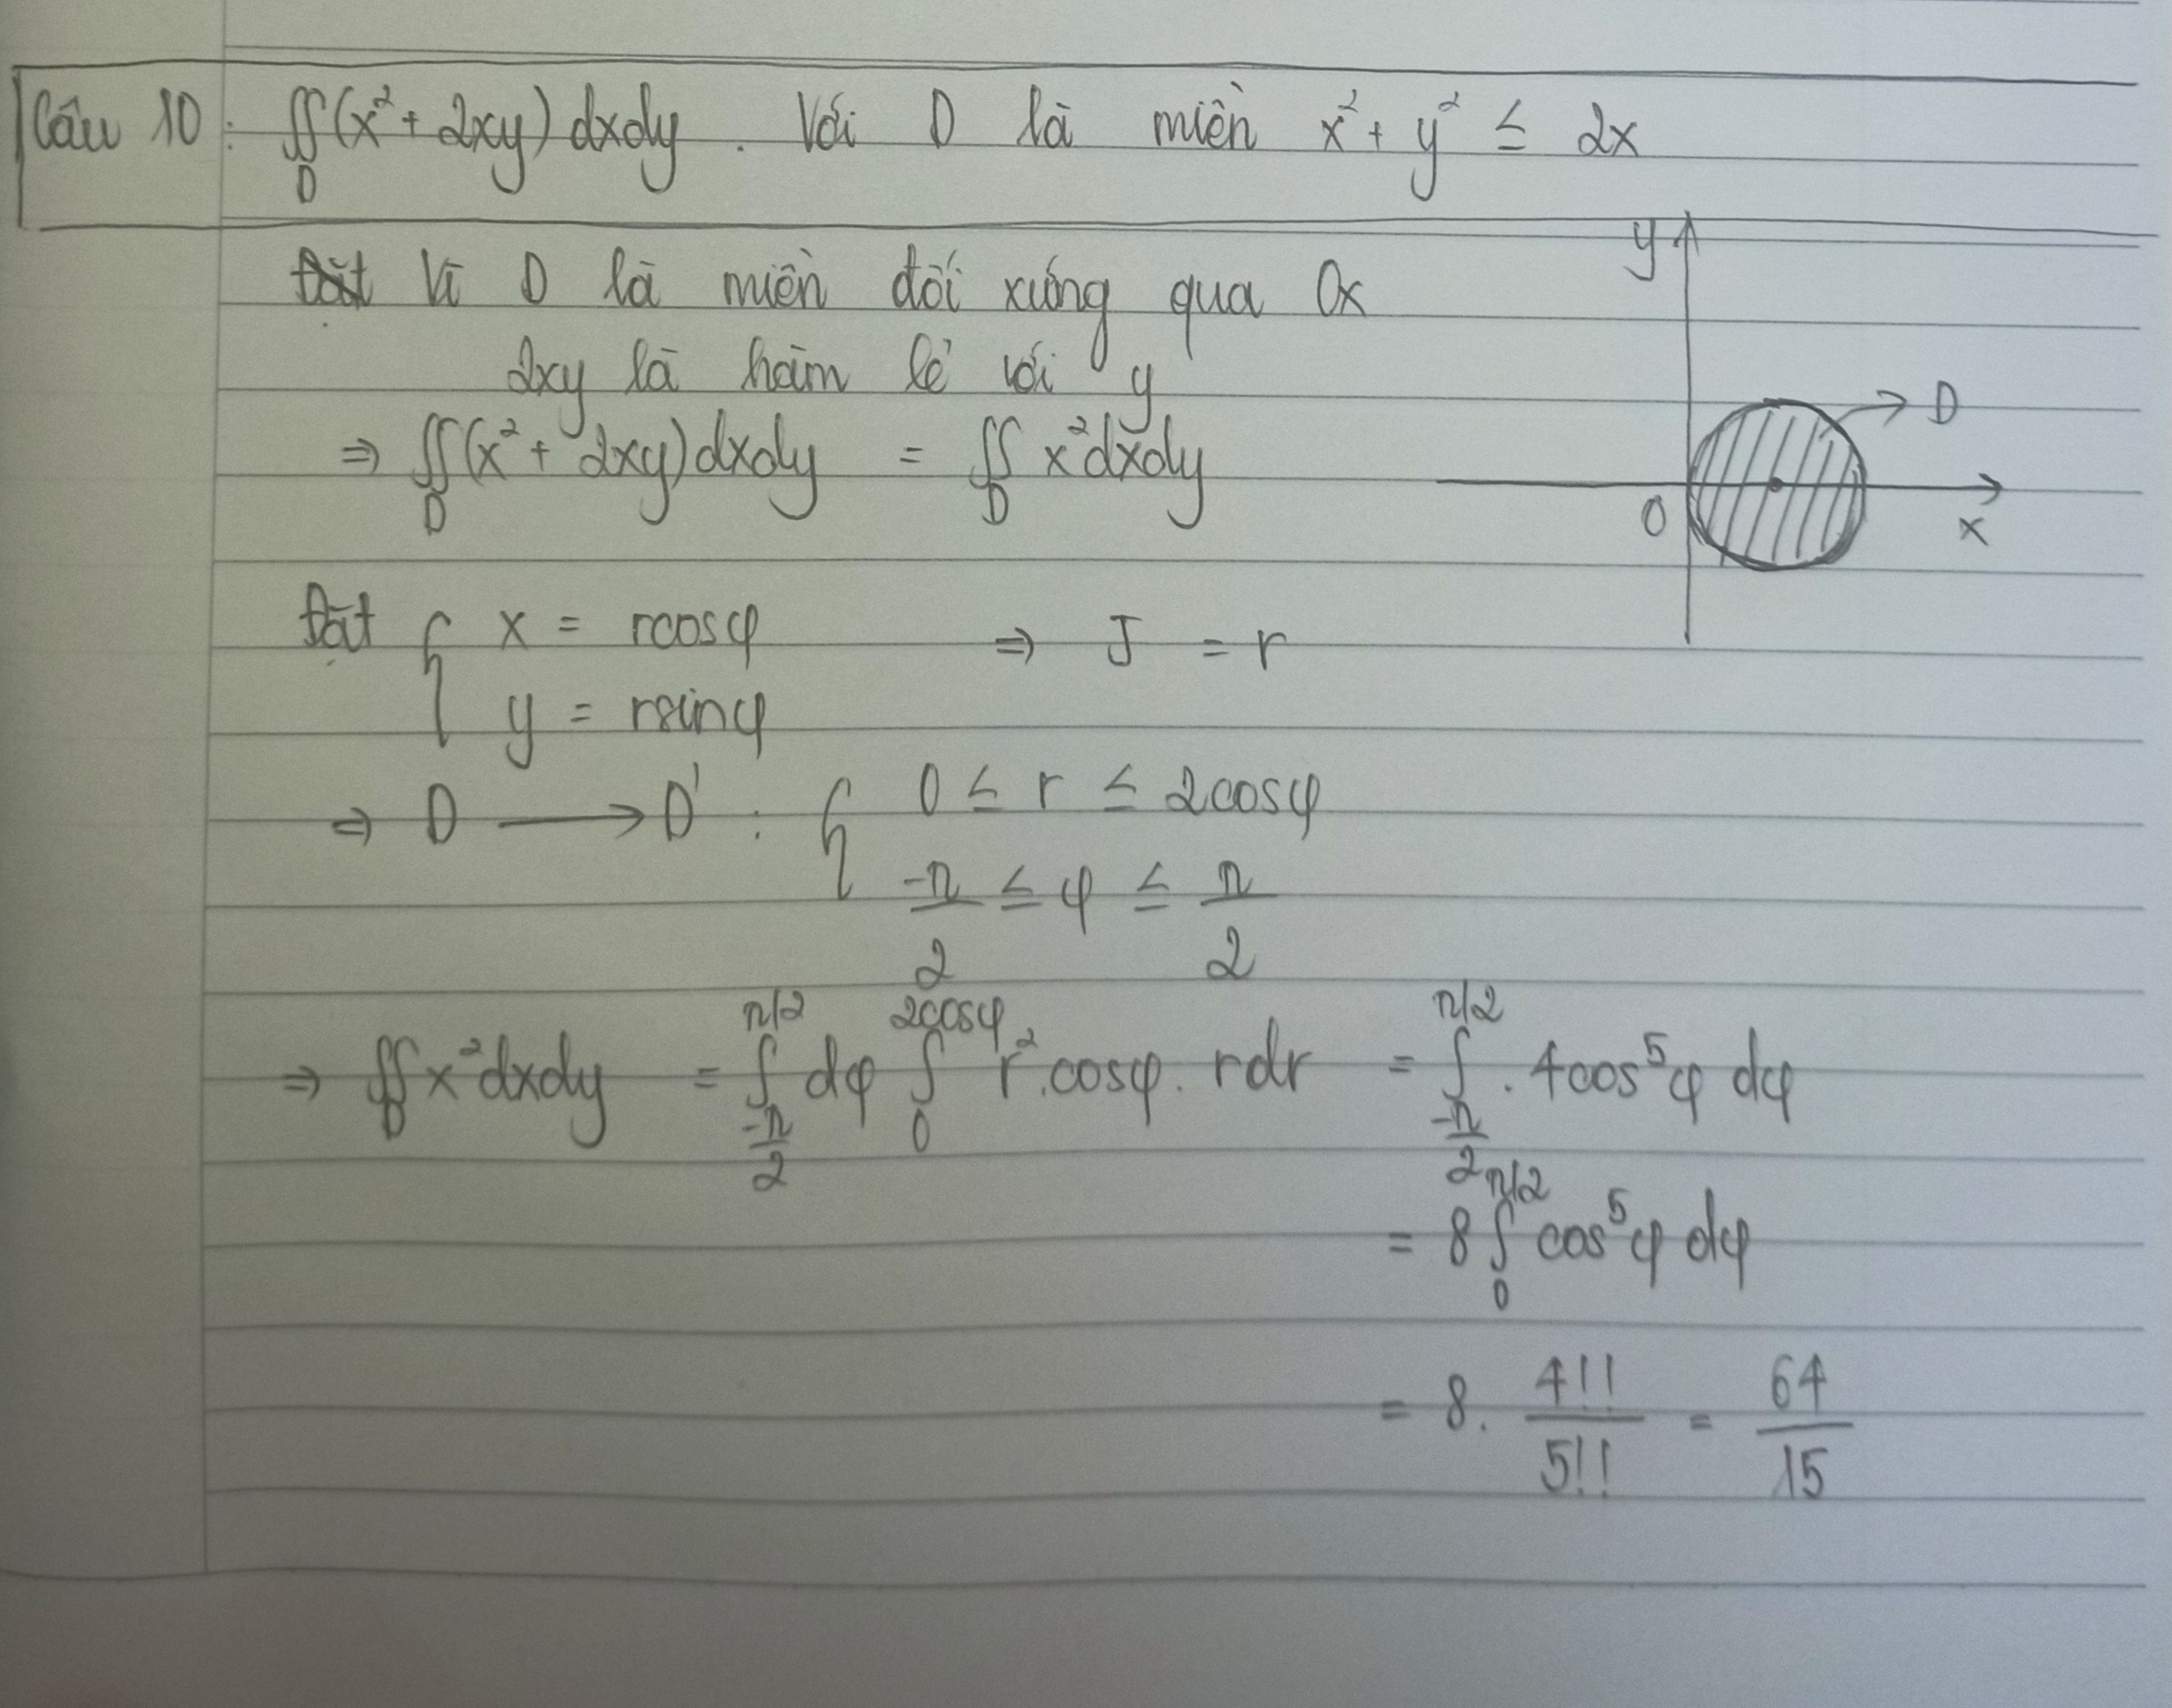 Câu 10: ∬_D (x² + 2xy) dxdy. Với D là miền x² + y² ≤ 2x
Vì D là miền đối xứng qua Ox
2xy là hàm lẻ với y
⇒ ∬_D (x² + 2xy) dxdy = ∬_D x² dxdy
y
D
O
x
Đặt { x = rcosφ ⇒ J = r
y = rsinφ
⇒ D → D' : { 0 ≤ r ≤ 2cosφ
-π/2 ≤ φ ≤ π/2
⇒ ∬_D x² dxdy = ∫_{-π/2}^{π/2} dφ ∫_0^{2cosφ} r².cosφ. rdr = ∫_{-π/2}^{π/2} . 4cos⁵φ dφ
= 8 ∫_0^{π/2} cos⁵φ dφ
= 8. 4!!/5!! = 64/15